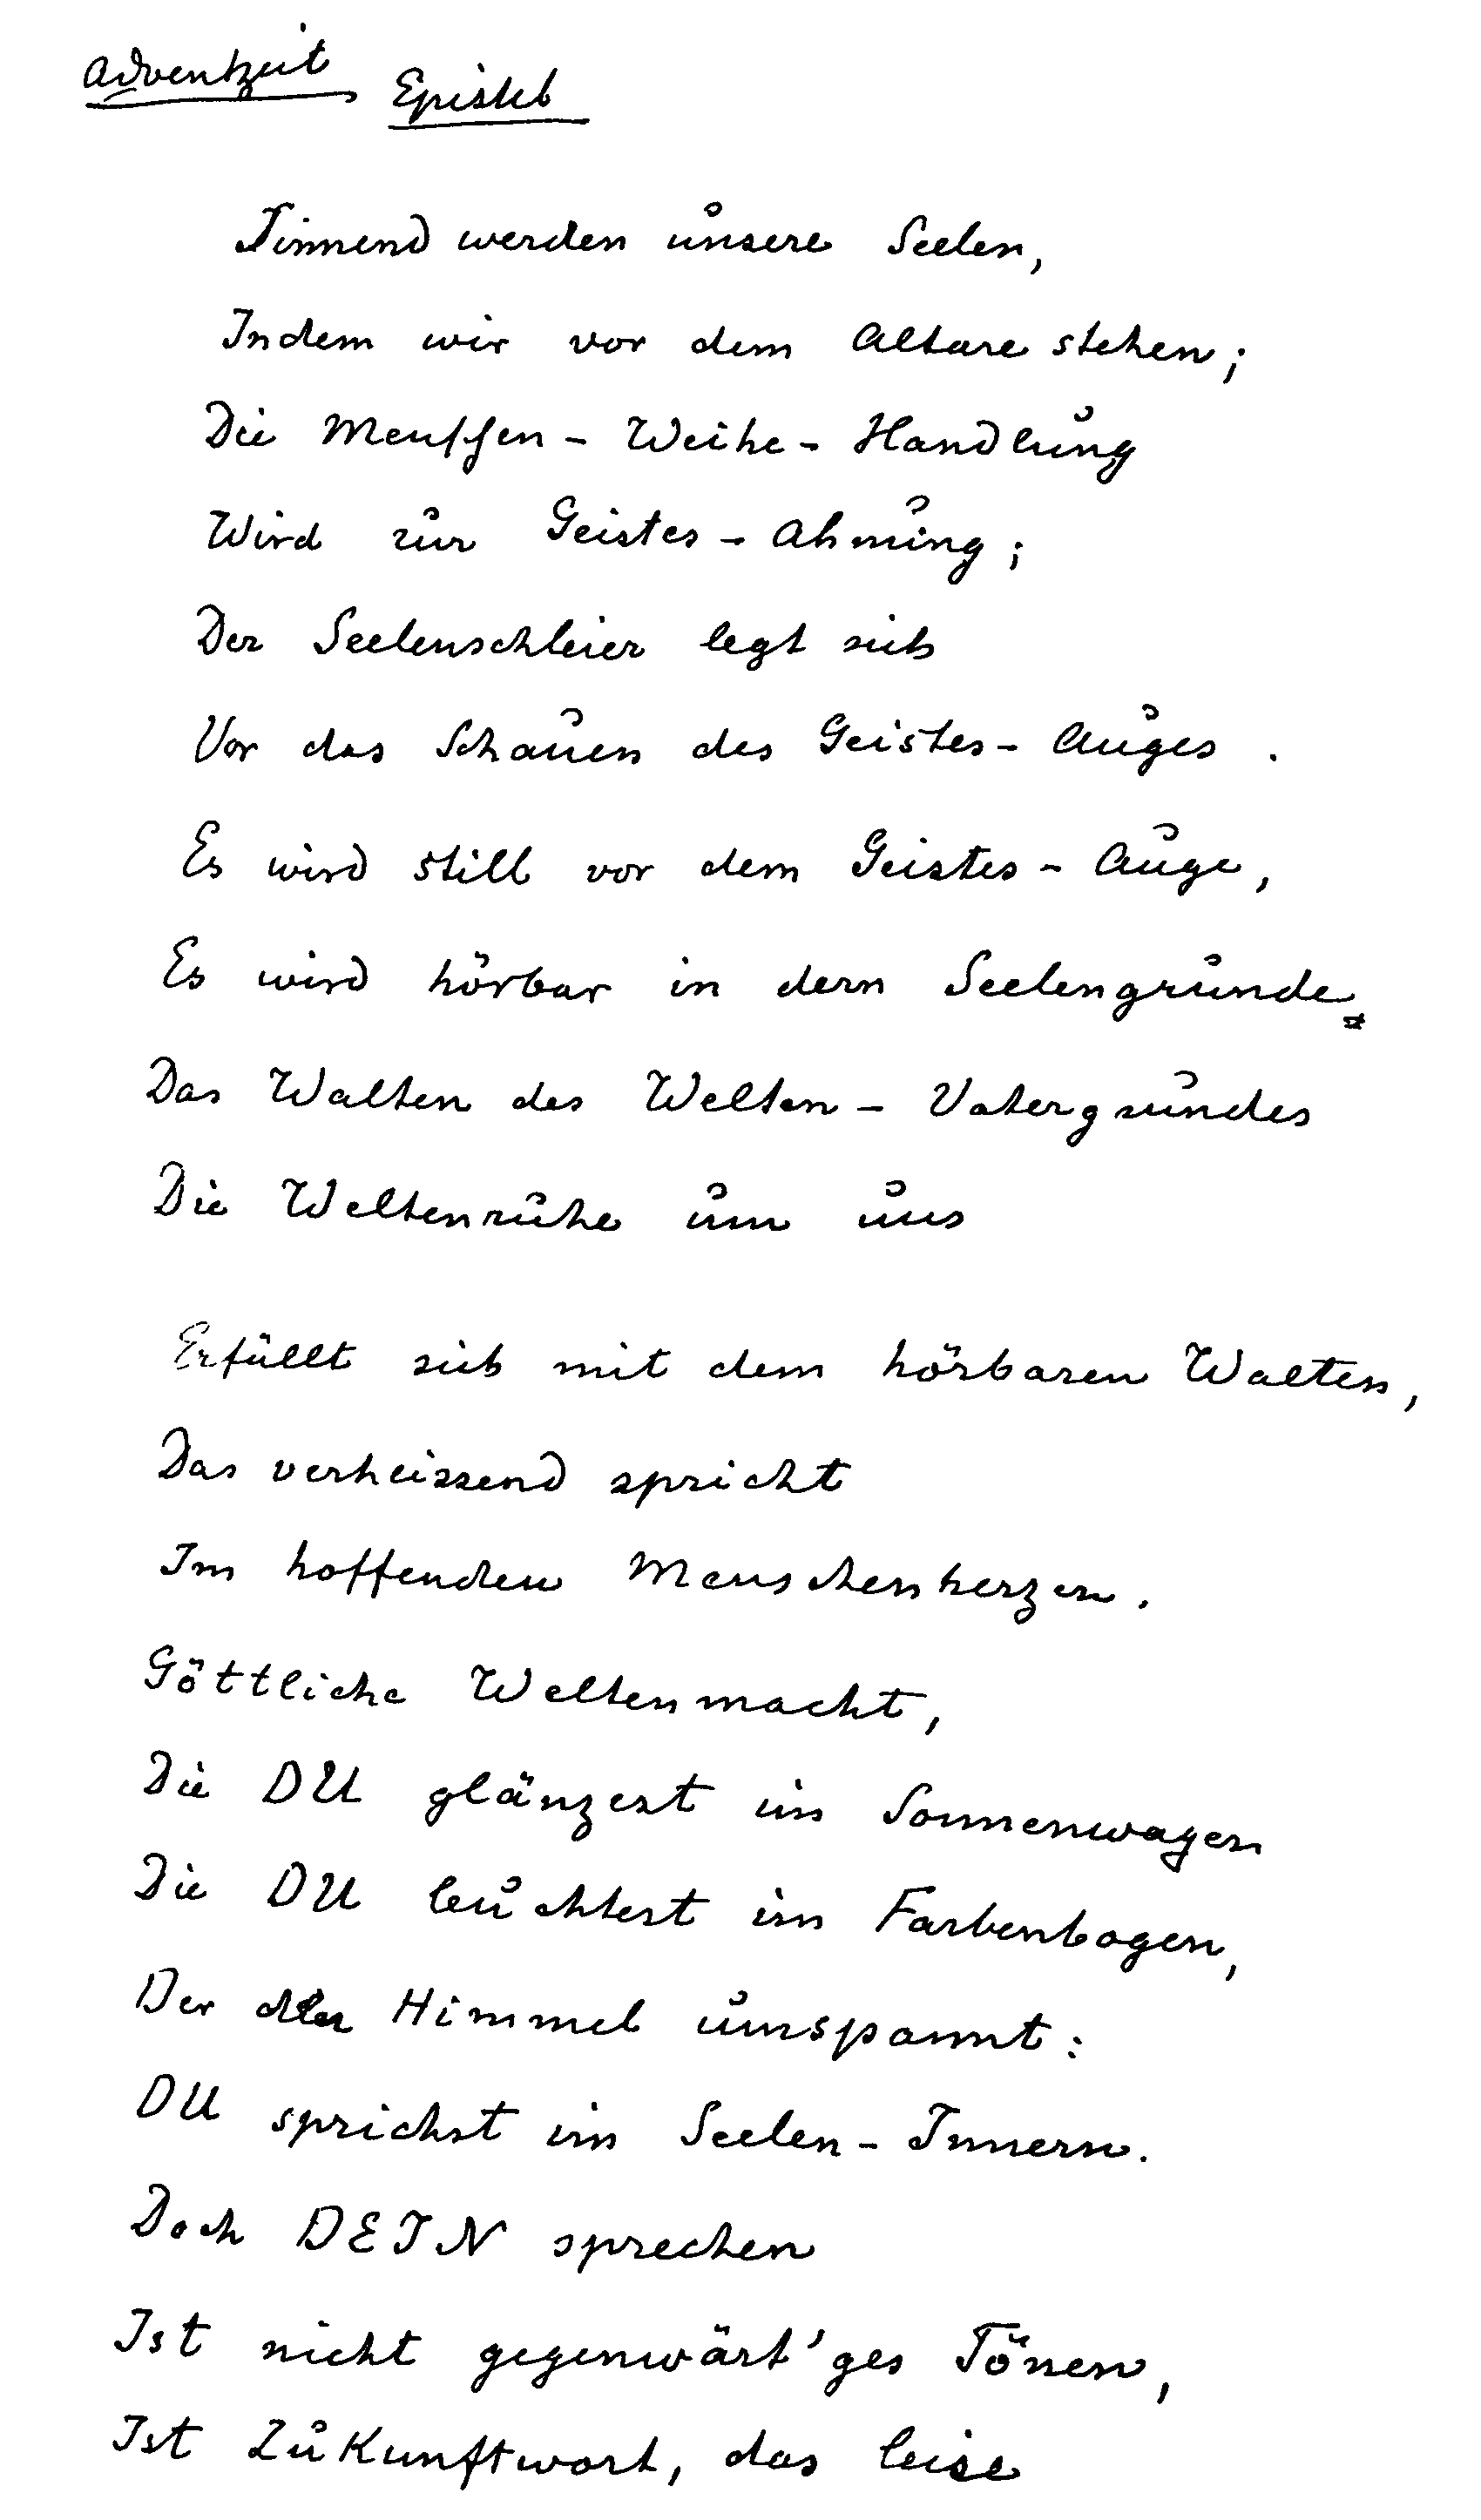 Adventzeit Epistel
Sinnend werden unsere Seelen,
Indem wir vor dem Altare stehen;
Die Menschen-Weihe-Handlung
Wird zur Geistes-Ahnung;
Der Seelenschleier legt sich
Vor das Schauen des Geistes-Auges.
Es wird still vor dem Geistes-Auge,
Es wird hörbar in dem Seelengrunde
Das Walten des Welten-Vatergrundes
Die Weltenruhe um uns
Erfüllt sich mit dem hörbaren Walten,
Das verheissend spricht
Im hoffenden Menschenherzen.
Göttliche Weltenmacht,
Die DU glänzest im Sonnenwagen
Die DU leuchtest im Farbenbogen,
Der den Himmel umspannt:
DU sprichst im Seelen-Innern.
Doch DEIN sprechen
Ist nicht gegenwärt'ges Tönen,
Ist Zukunftwort, das leise